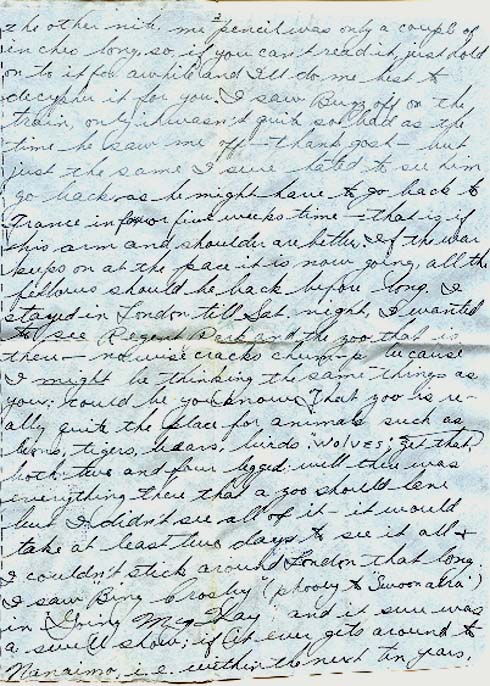 3
the other nite me pencil was only a couple of
inches long so, if you can't read it, just hold
on to it for awhile and I'll do me best to
decypher it for you. I saw Buzz off on the
train, only it wasn't quite so bad as the
time he saw me off - thank gosh - but
just the same I sure hated to see him
go back as he might have to go back to
France in four or five weeks time - that is if
his arm and shoulder are better. If the war
keeps on at the pace it is now going, all the
fellows should be back before long. I
stayed in London till Sat. night, I wanted
to see Regent Park and the zoo that is
there - no wise cracks chum - because
I might be thinking the same things as
you; could be you know. That zoo is re-
ally quite the place for animals such as
lions, tigers, bears, birds, "wolves; get that,
both two and four legged; well there was
everything there that a zoo should have
but I didn't see all of it - it would
take at least two days to see it all +
I couldn't stick around London that long.
I saw Bing Crosby (phooey to 'Swoonatra')
in "Going My Way" and it sure was
a swell show; if it ever gets around to
Nanaimo, i.e. within the next ten years,